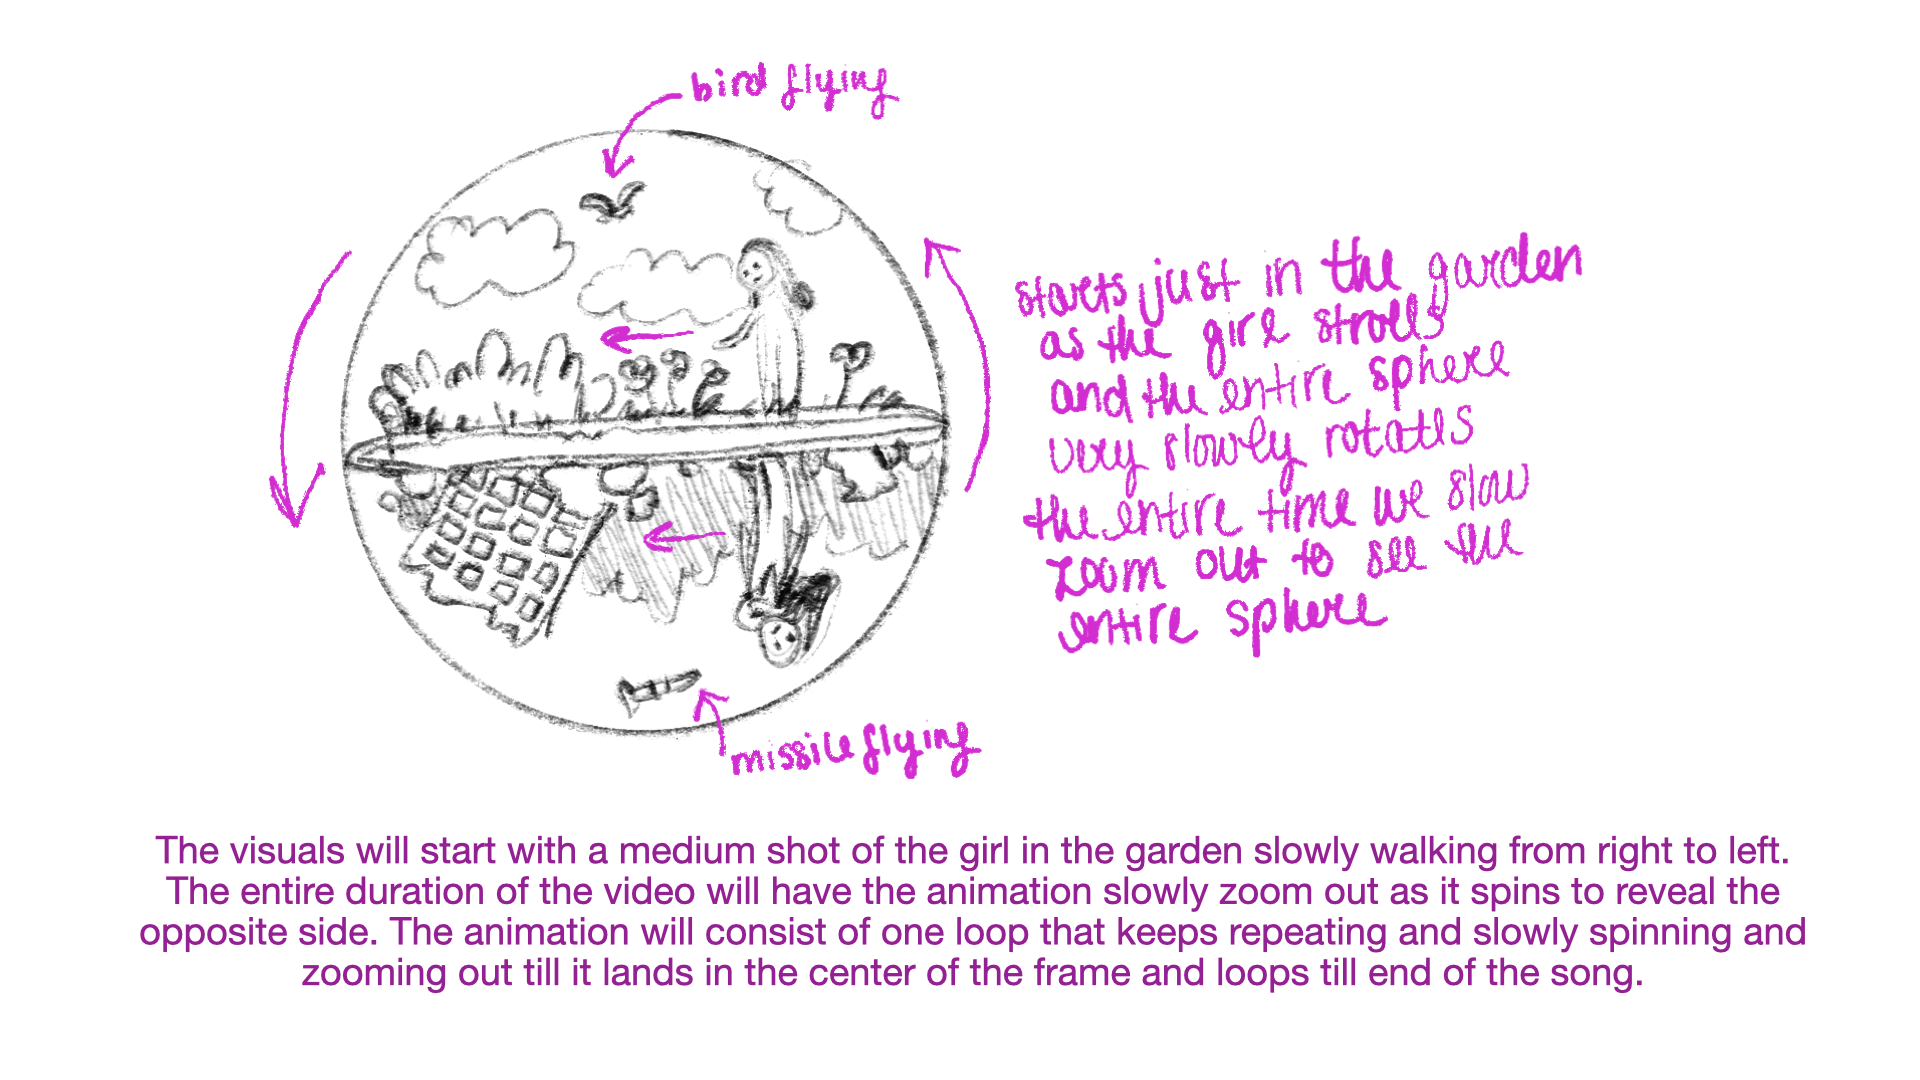 bird flying
starts just in the garden
as the girl strolls
and the entire sphere
very slowly rotates
the entire time we slow
zoom out to see the
entire sphere
missile flying
The visuals will start with a medium shot of the girl in the garden slowly walking from right to left.
The entire duration of the video will have the animation slowly zoom out as it spins to reveal the
opposite side. The animation will consist of one loop that keeps repeating and slowly spinning and
zooming out till it lands in the center of the frame and loops till end of the song.